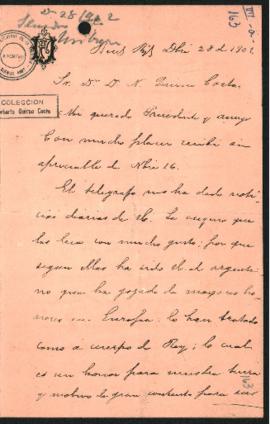 D - 28/902
COLECCION
Norberto Quirno Costa
Dbre 28 de 1902
Sr. Dr. D. N. Quirno Costa
Mi querido Presidente y amigo
Con mucho placer recibí su
apreciable de Nbre 16.
El telegrafo nos ha dado noti
cias diarias de Ud. Le aseguro que
las leia con mucho gusto; por que
segun ellas ha sido Ud. el argenti
no que ha gozado de mayores ho
nores en Europa; lo han tratado
como a cuerpo de Rey; lo cual
es un honor para nuestra tierra
y motivo de gran contento para sus
163